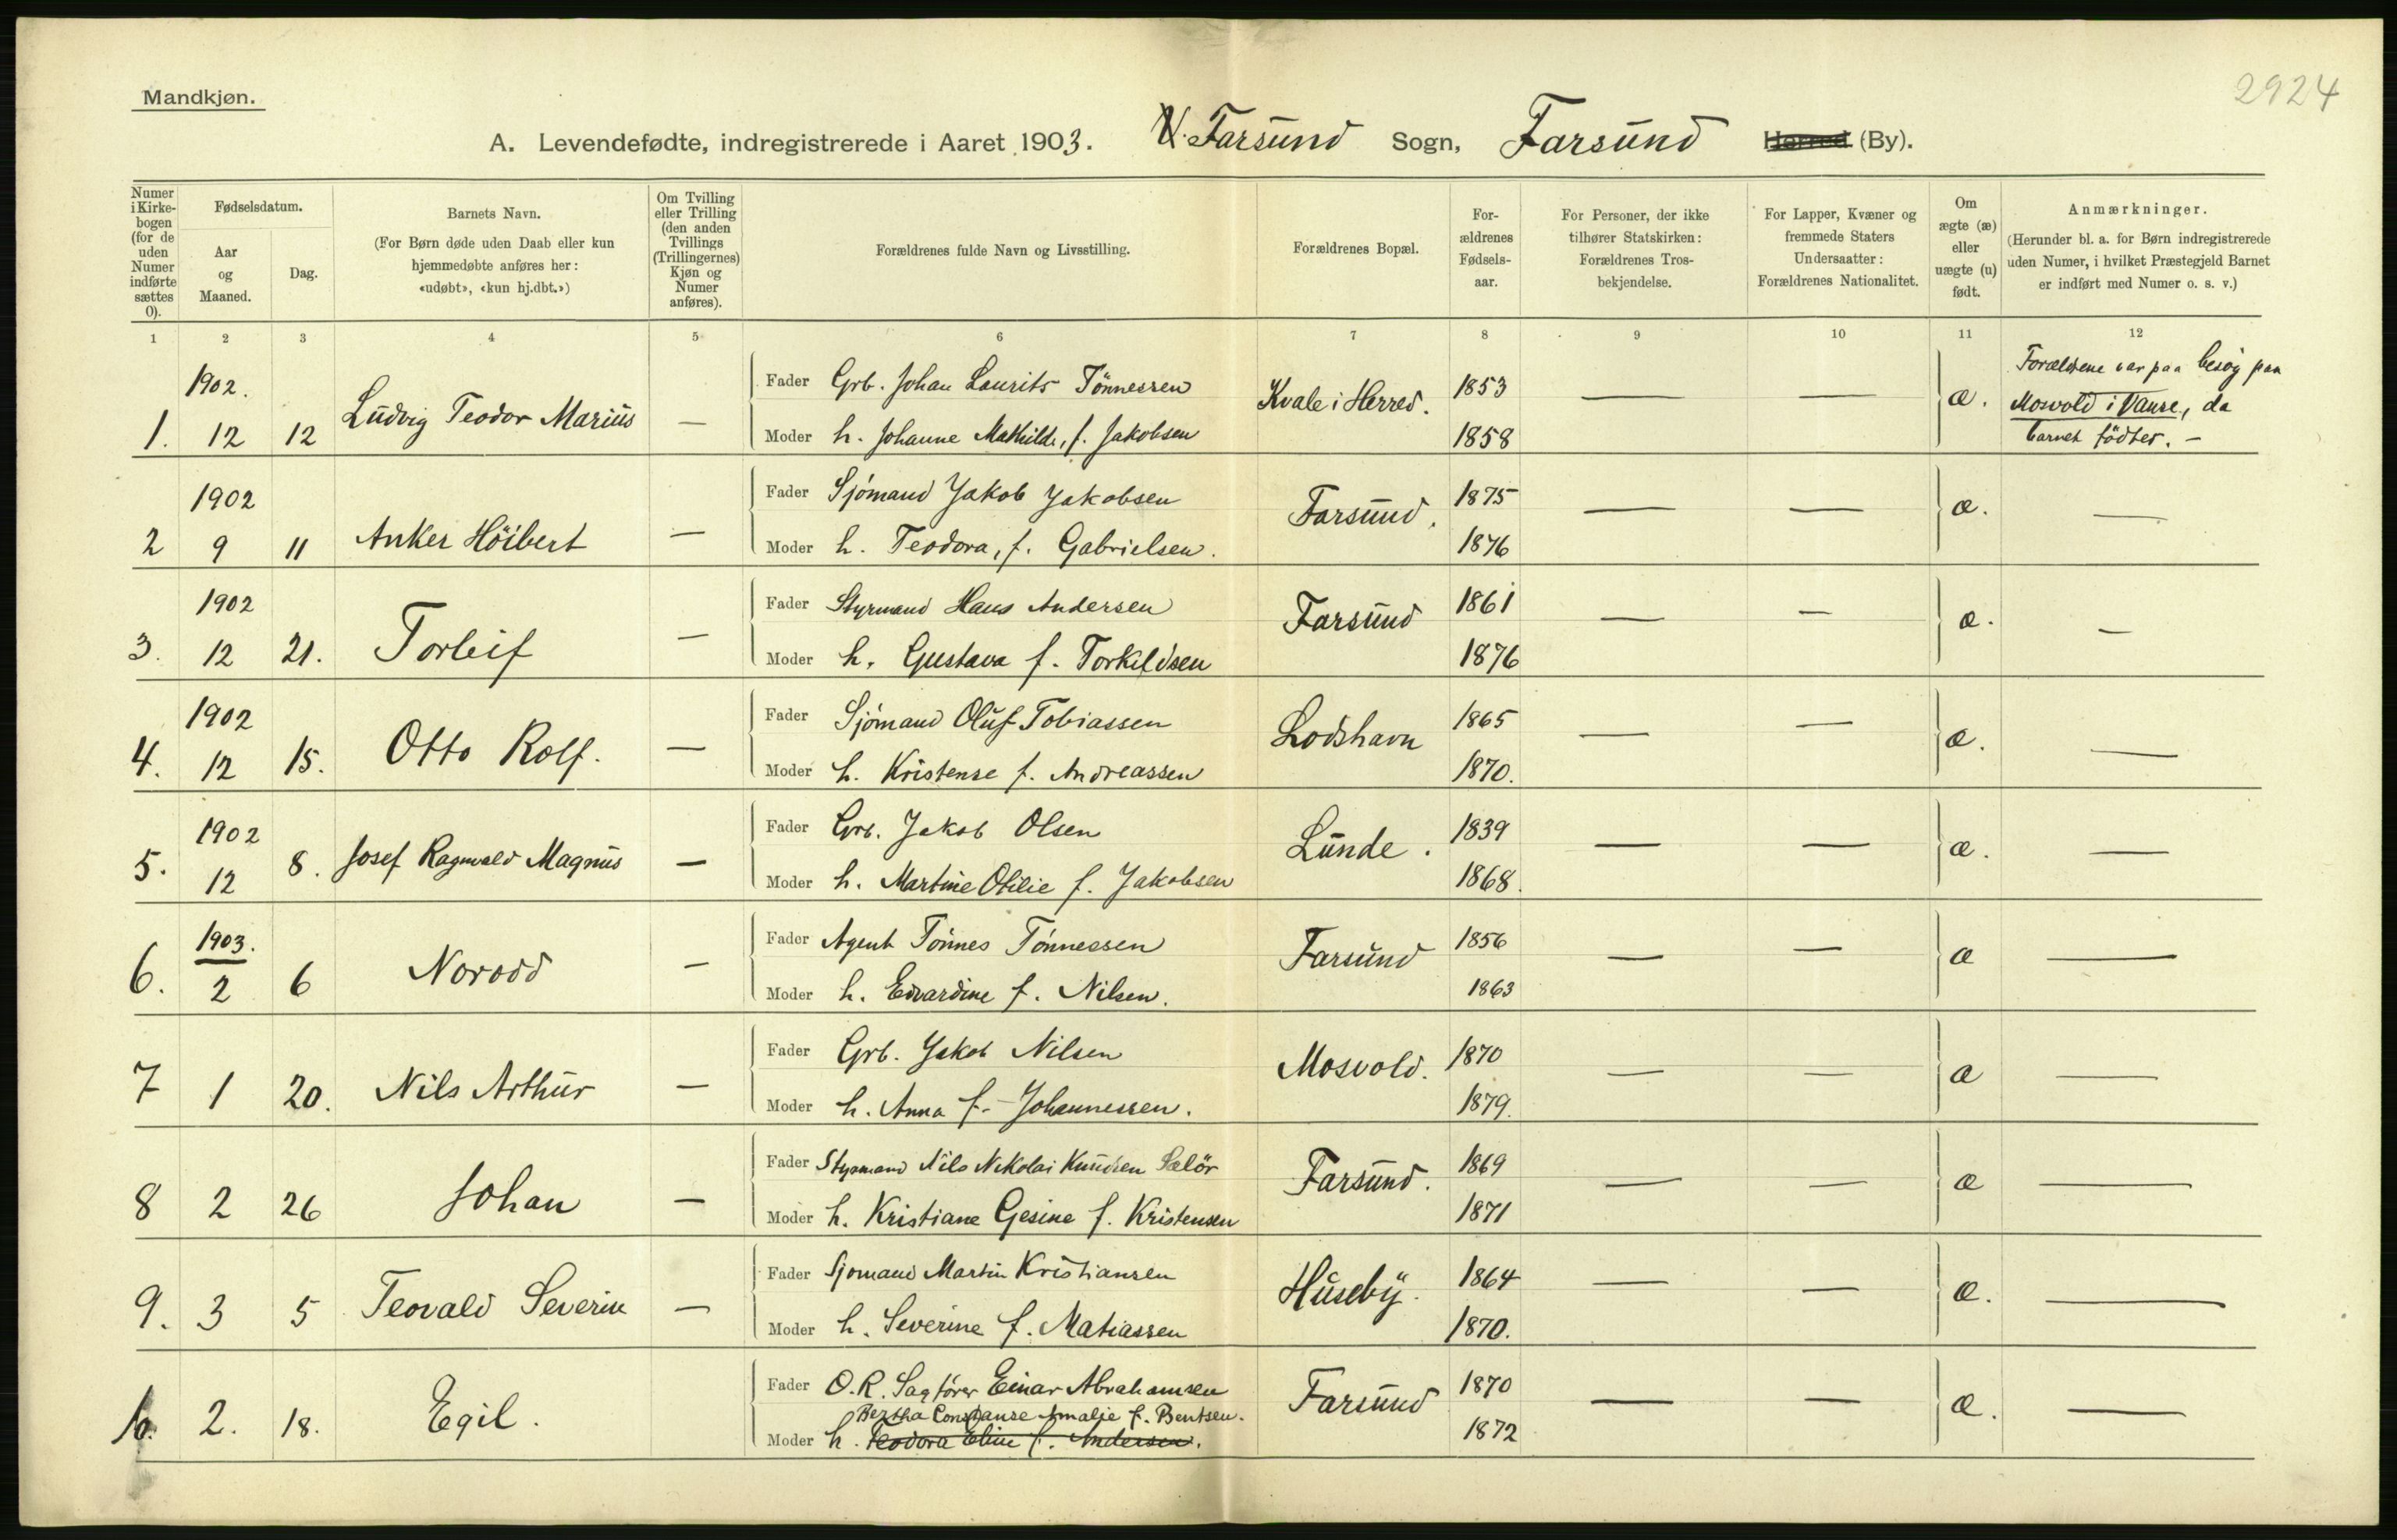 2924
Mandkjøn.
A. Levendefødte, indregistrerede i Aaret 1903. Farsund Sogn, Farsund Herred (By).
Numer i Kirkebogen (for de uden Numer indførte sættes 0).
Fødselsdatum.
Aar og Maaned.
Dag.
Barnets Navn.
(For Børn døde uden Daab eller kun hjemmedøbte anføres her: «udøbt», «kun hj.dbt.»)
Om Tvilling eller Trilling (den anden Tvillings (Trillingernes) Kjøn og Numer anføres).
Forældrenes fulde Navn og Livsstilling.
Forældrenes Bopæl.
For-ældrenes Fødsels-aar.
For Personer, der ikke tilhører Statskirken: Forældrenes Tros-bekjendelse.
For Lapper, Kvæner og fremmede Staters Undersaatter: Forældrenes Nationalitet.
Om ægte (æ) eller uægte (u) født.
Anmærkninger.
(Herunder bl. a. for Børn indregistrerede uden Numer, i hvilket Præstegjeld Barnet er indført med Numer o. s. v.)
1 2 3 4 5 6 7 8 9 10 11 12
1. 1902. 12 12 Ludvig Teodor Marius —
Fader Grb. Johan Laurits Tönnessen Kvale i Herred. 1853 — — æ. Forældrene var paa besøg paa Mosvold i Vanse, da barnet födtes. —
Moder h. Johanne Mathilde, f. Jakobsen 1858
2 1902 9 11 Anker Höibert —
Fader Sjömand Jakob Jakobsen Farsund. 1875 — — æ. —
Moder h. Teodora, f. Gabrielsen. 1876
3. 1902 12 21. Torleif —
Fader Styrmand Hans Andersen Farsund 1861 — — æ. —
Moder h. Gustava f. Torkildsen 1876
4. 1902 12 15. Otto Rolf. —
Fader Sjömand Oluf Tobiassen Lodshavn 1865 — — æ. —
Moder h. Kristense f. Andreassen 1870.
5. 1902 12 8. Josef Ragnvald Magnus —
Fader Grb. Jakob Olsen Lunde. 1839 — — æ. —
Moder h. Martine Otilie f. Jakobsen 1868.
6. 1903. 2 6 Norodd —
Fader Agent Tönnes Tönnessen Farsund 1856 — — æ —
Moder h. Edvardine f. Nilsen. 1863
7 1 20. Nils Arthur —
Fader Grb. Jakob Nilsen Mosvold. 1870 — — æ —
Moder h. Anna f. Johannessen. 1879.
8 2 26 Johan —
Fader Styrmand Nils Nikolai Knudsen Selör Farsund. 1869 — — æ —
Moder h. Kristiane Gesine f. Kristensen 1871
9. 3 5 Teovald Severin —
Fader Sjomand Martin Kristiansen Huseby. 1864 — — æ. —
Moder h. Severine f. Matiassen 1870.
10. 2. 18. Egil.
Fader O.R. Sagförer Einar Abrahamsen Farsund 1870 — — æ. —
Bertha Constanse Amalie f. Bentsen.
Moder h. Teodora Eline f. Andersen. 1872